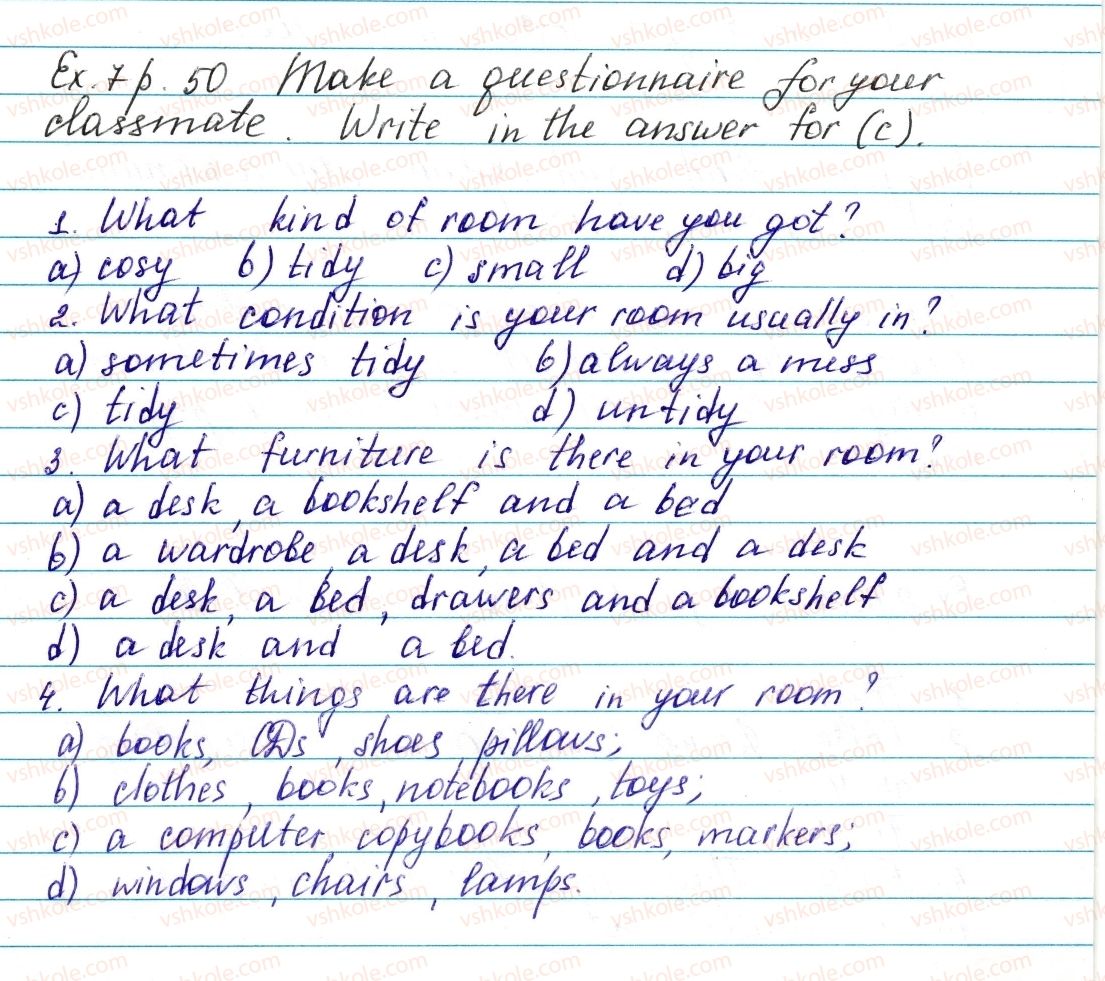 Ex. 7 p. 50 Make a questionnaire for your
classmate. Write in the answer for (c).
1. What kind of room have you got?
a) cosy b) tidy c) small d) big
2. What condition is your room usually in?
a) sometimes tidy b) always a mess
c) tidy d) untidy
3. What furniture is there in your room?
a) a desk, a bookshelf and a bed
b) a wardrobe, a desk, a bed and a desk
c) a desk, a bed, drawers and a bookshelf
d) a desk and a bed.
4. What things are there in your room?
a) books, CDs, shoes, pillows;
b) clothes, books, notebooks, toys;
c) a computer, copybooks, books, markers;
d) windows, chairs, lamps.